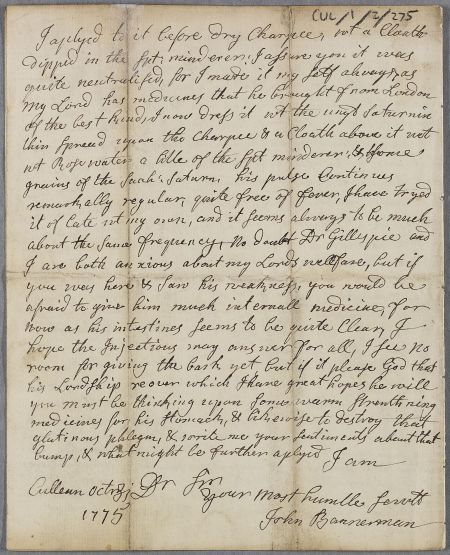 CUL/1/2/275
I aplyed to it before dry Charpee, wt a Cloath
dipped in the spt: minderer: I assure you it was
quite neutralised, for I made it my self always, as
my Lord has medicines that he brought from London
of the best kind, I now dress it wt the ungt Saturnin
thin spread upon the Charpee & a Cloath above it wet
wt Rose water a litle of the spt minderer: & some
grains of the Sach: Saturn: his pulse Continues
remarkally regular, quite free of fever, I have tryed
it of late wt my own, and it seems always to be much
about the same frequency, No doubt Dr Gillespie and
I are both anxious about my Lords wellfare, but if
you was here & saw his weakness, you would be
afraid to give him much internall medicine, for
now as his intestines seems to be quite Clear, I
hope the Injections may answer for all, I see no
room for giving the bark yet but if it please God that
his Lordship recover which I have great hopes he will
you must be thinking upon some warm strenthning
medicines for his stomack, & likewise to destroy that
glutinous phlegm, & write me your sentiments about that
bump, & what might be further aplyd I am
Cullean Octr Dr Sir
your most humble Servtt
1775 John Bannerman